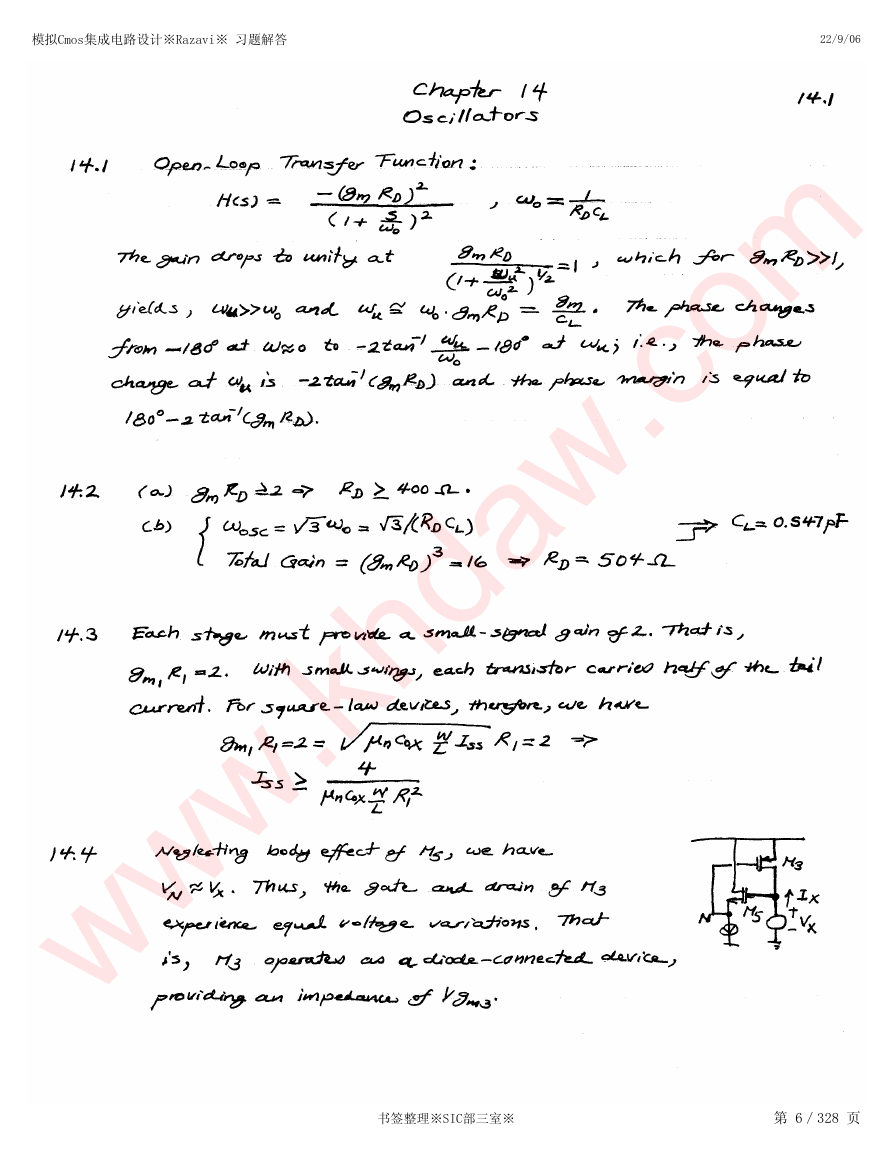 模拟Cmos集成电路设计※Razavi※ 习题解答 22/9/06
Chapter 14 14.1
Oscillators
14.1 Open-Loop Transfer Function:
H(s) = -(gm RD)² / (1 + s/ω0)² , ω0 = 1/(RD CL)
The gain drops to unity at gm RD / (1 + ωu²/ω0²)^1/2 = 1 , which for gm RD >> 1,
yields, ωu >> ω0 and ωu ≅ ω0 · gm RD = gm/CL . The phase changes
from -180° at ω≈0 to -2tan⁻¹ ωu/ω0 - 180° at ωu ; i.e., the phase
change at ωu is -2tan⁻¹(gm RD) and the phase margin is equal to
180° - 2 tan⁻¹(gm RD).
14.2 (a) gm RD ≥ 2 ⇒ RD ≥ 400 Ω .
(b) { ωosc = √3 ω0 = √3/(RD CL) ⇒ CL = 0.547 pF
Total Gain = (gm RD)³ = 16 ⇒ RD = 504 Ω
14.3 Each stage must provide a small-signal gain of 2. That is,
gm1 R1 = 2. With small swings, each transistor carries half of the tail
current. For square-law devices, therefore, we have
gm1 R1 = 2 = √(μn Cox W/L ISS) R1 = 2 ⇒
ISS ≥ 4 / (μn Cox W/L R1²)
14.4 Neglecting body effect of M5, we have
VN ≈ VX . Thus, the gate and drain of M3
experience equal voltage variations. That
is, M3 operates as a diode-connected device,
providing an impedance of 1/gm3.
M3
IX
N M5 + VX -
www.khdaw.com
书签整理※SIC部三室※ 第 6 / 328 页